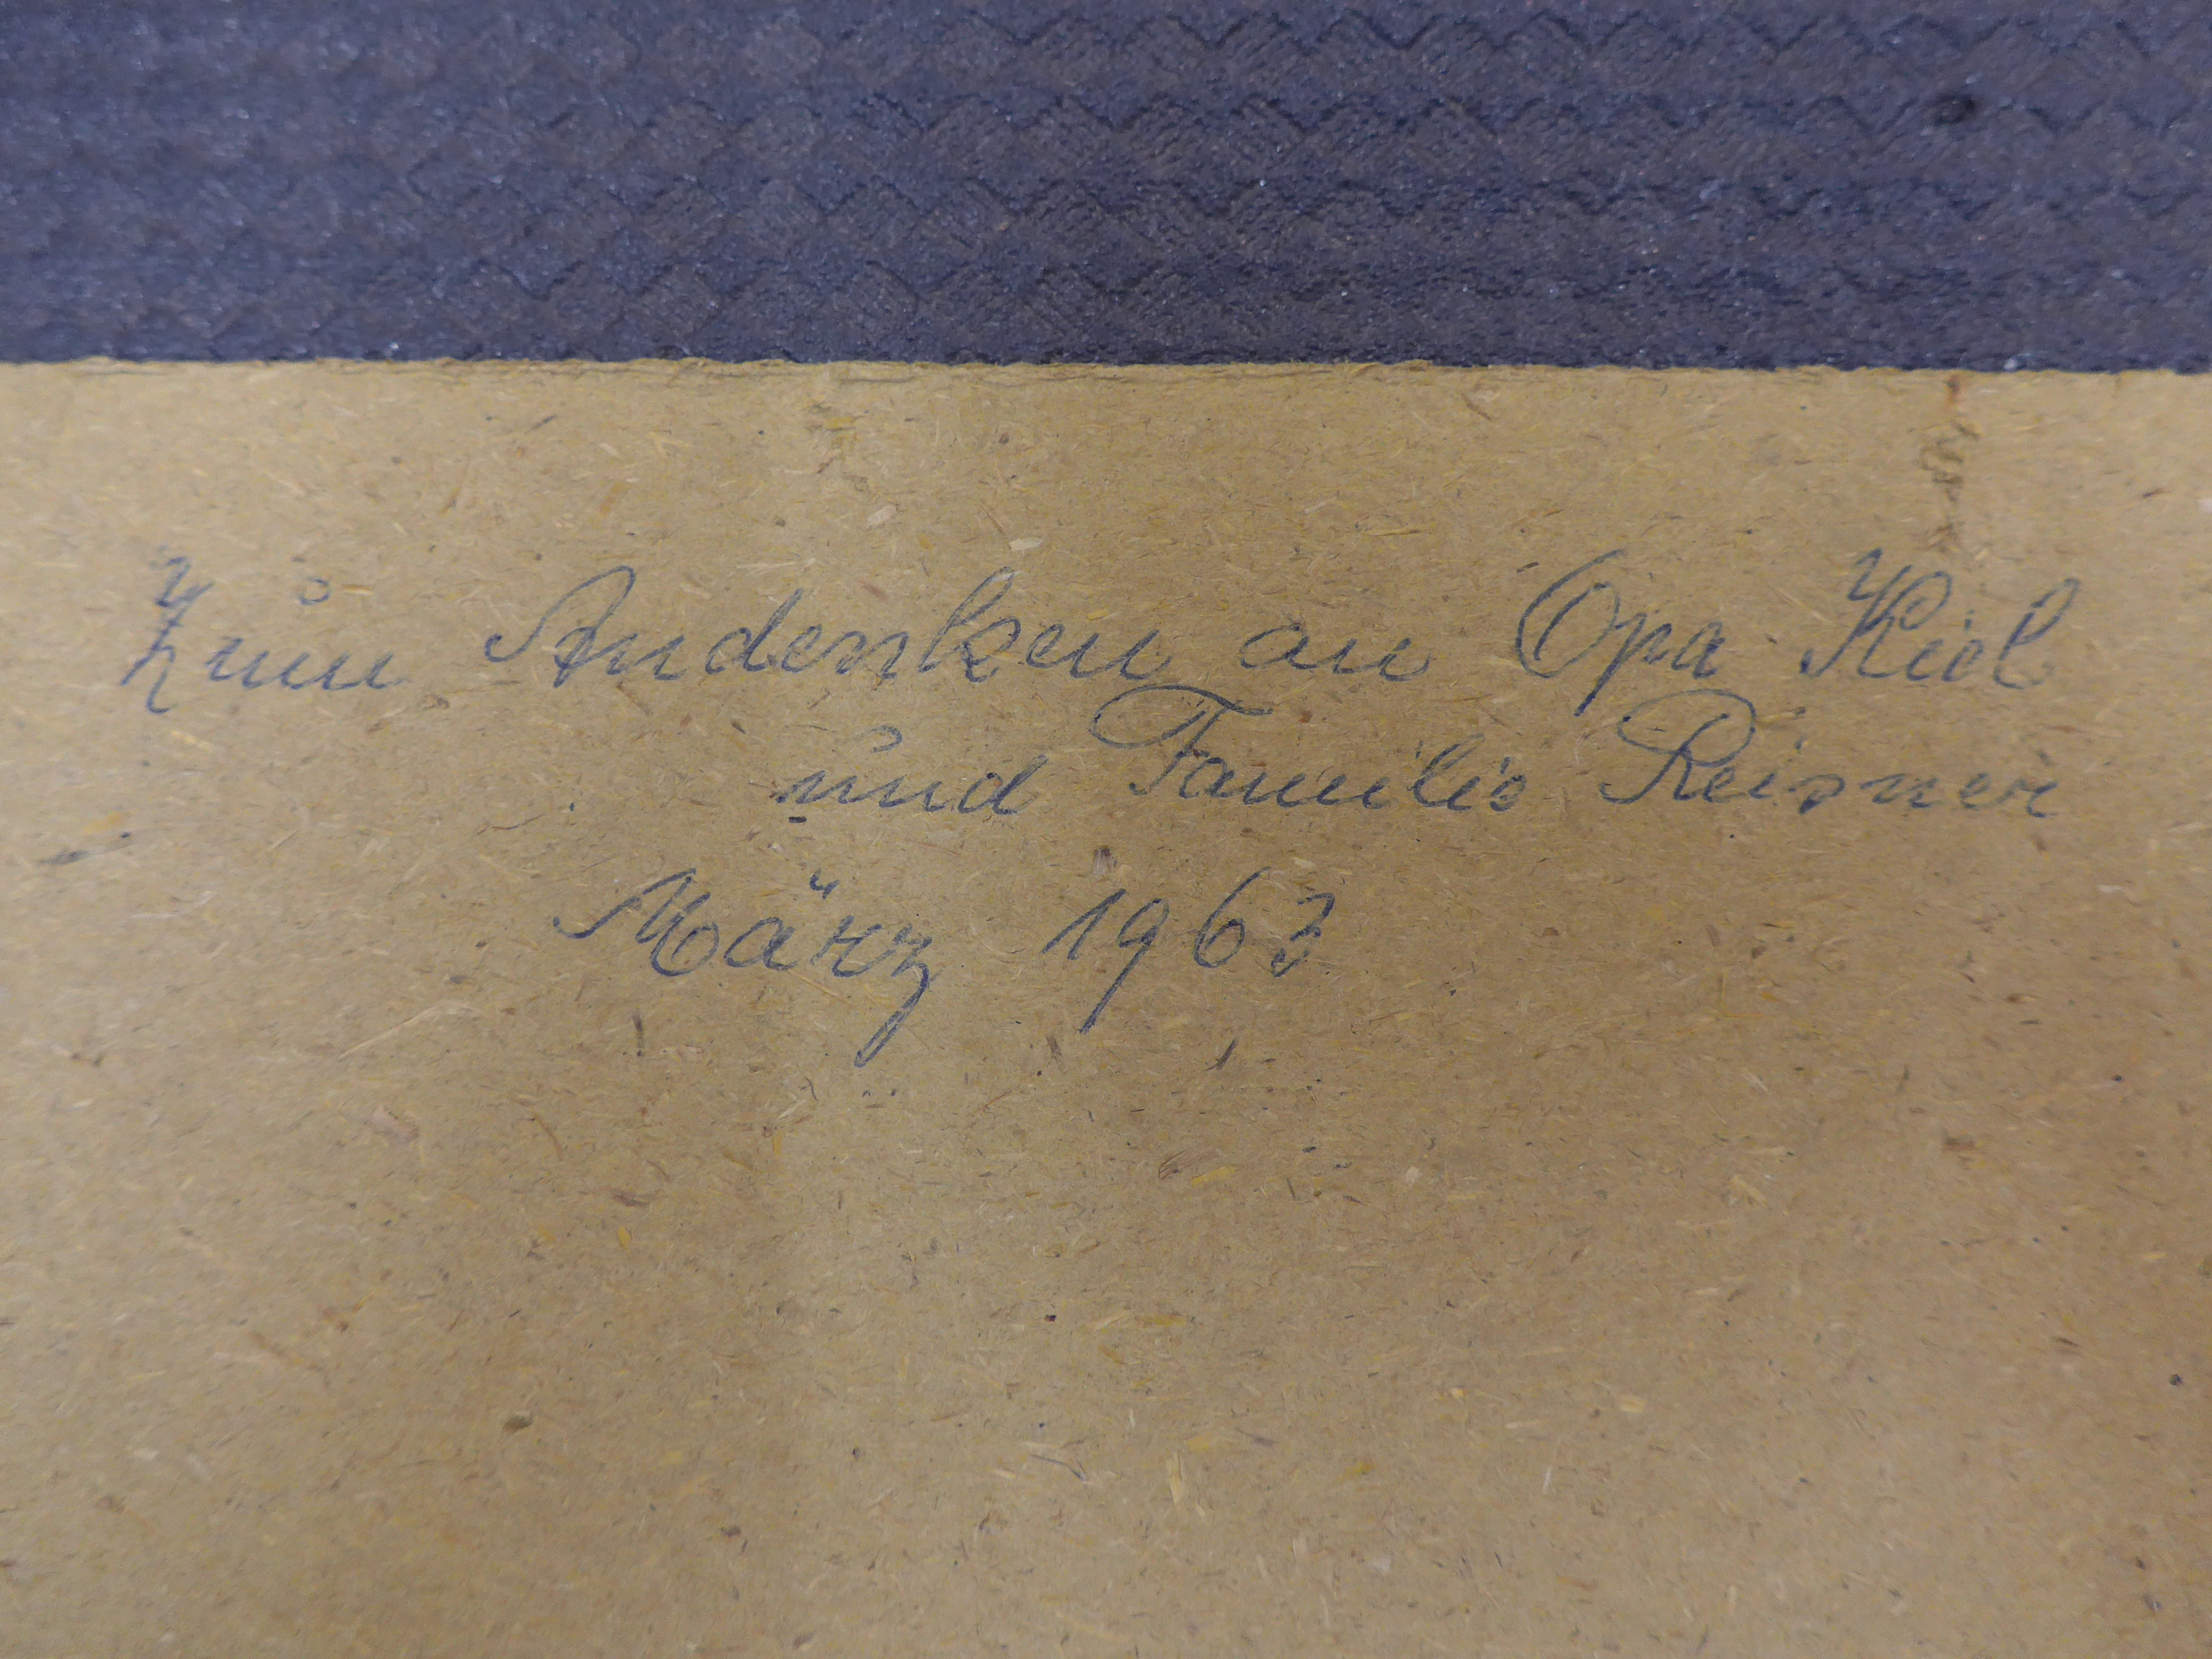 Zum Andenken an Opa Kiel
und Familie Reisner
März 1963